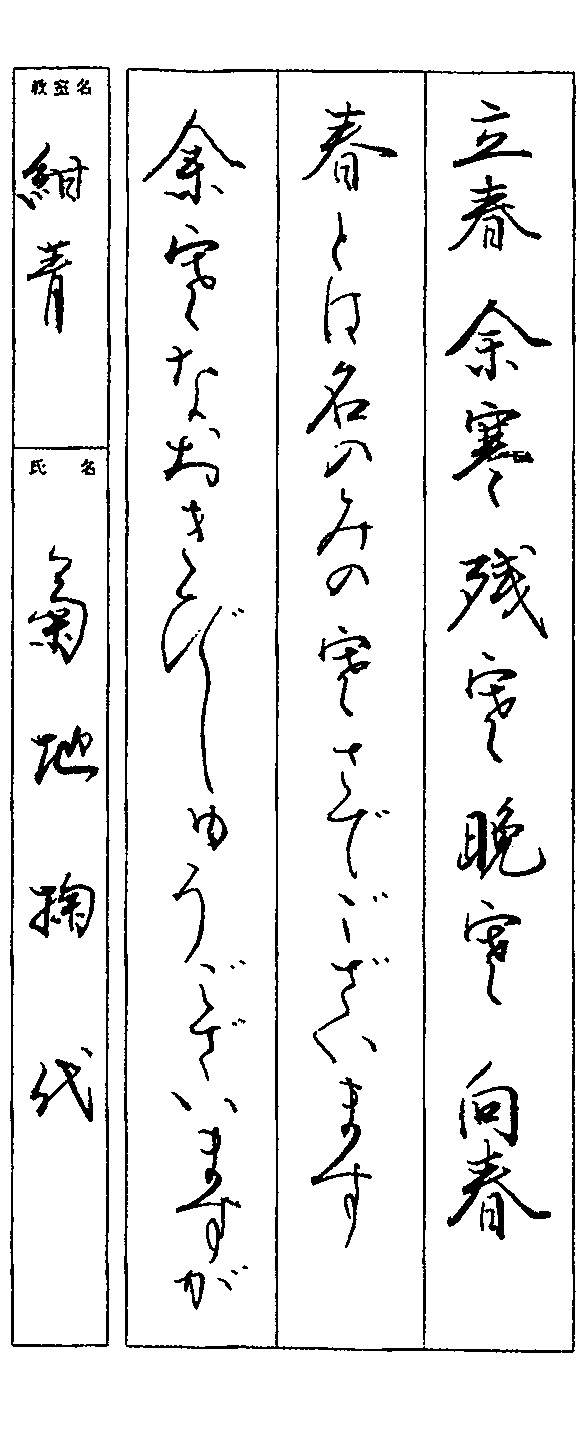 立春 余寒 残寒 晩寒 向春
春とは名のみの寒さでございます
余寒なおきびしゅうございますが
教室名
紺青
氏名
菊地掬代